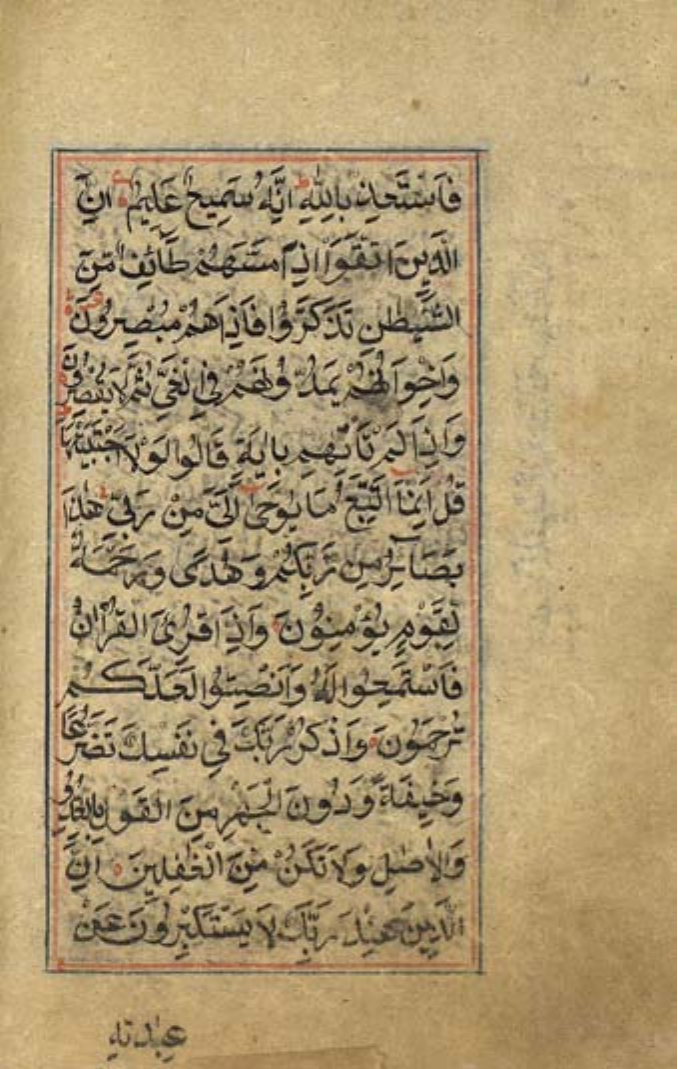 فَاسْتَعِذْ بِاللهِ اِنَّهُ سَمِيعٌ عَلِيمٌ اِنَّ
الَّذِينَ اتَّقَوْا اِذَا مَسَّهُمْ طَائِفٌ مِّنَ
الشَّيْطٰنِ تَذَكَّرُوا فَاِذَا هُمْ مُّبْصِرُونَ
وَاِخْوَانُهُمْ يَمُدُّونَهُمْ فِي الْغَيِّ ثُمَّ لَا يُقْصِرُونَ
وَاِذَا لَمْ تَاْتِهِمْ بِاٰيَةٍ قَالُوا لَوْلَا اجْتَبَيْتَهَا
قُلْ اِنَّمَا اَتَّبِعُ مَا يُوحٰى اِلَىَّ مِنْ رَبِّي هٰذَا
بَصَآئِرُ مِنْ رَّبِّكُمْ وَهُدًى وَرَحْمَةٌ
لِّقَوْمٍ يُؤْمِنُونَ وَاِذَا قُرِئَ الْقُرْاٰنُ
فَاسْتَمِعُوا لَهُ وَاَنْصِتُوا لَعَلَّكُمْ
تُرْحَمُونَ وَاذْكُرْ رَبَّكَ فِي نَفْسِكَ تَضَرُّعًا
وَخِيفَةً وَدُونَ الْجَهْرِ مِنَ الْقَوْلِ بِالْغُدُوِّ
وَالْاٰصَالِ وَلَا تَكُنْ مِّنَ الْغٰفِلِينَ اِنَّ
الَّذِينَ عِنْدَ رَبِّكَ لَا يَسْتَكْبِرُونَ عَنْ
عِبَادَتِهِ